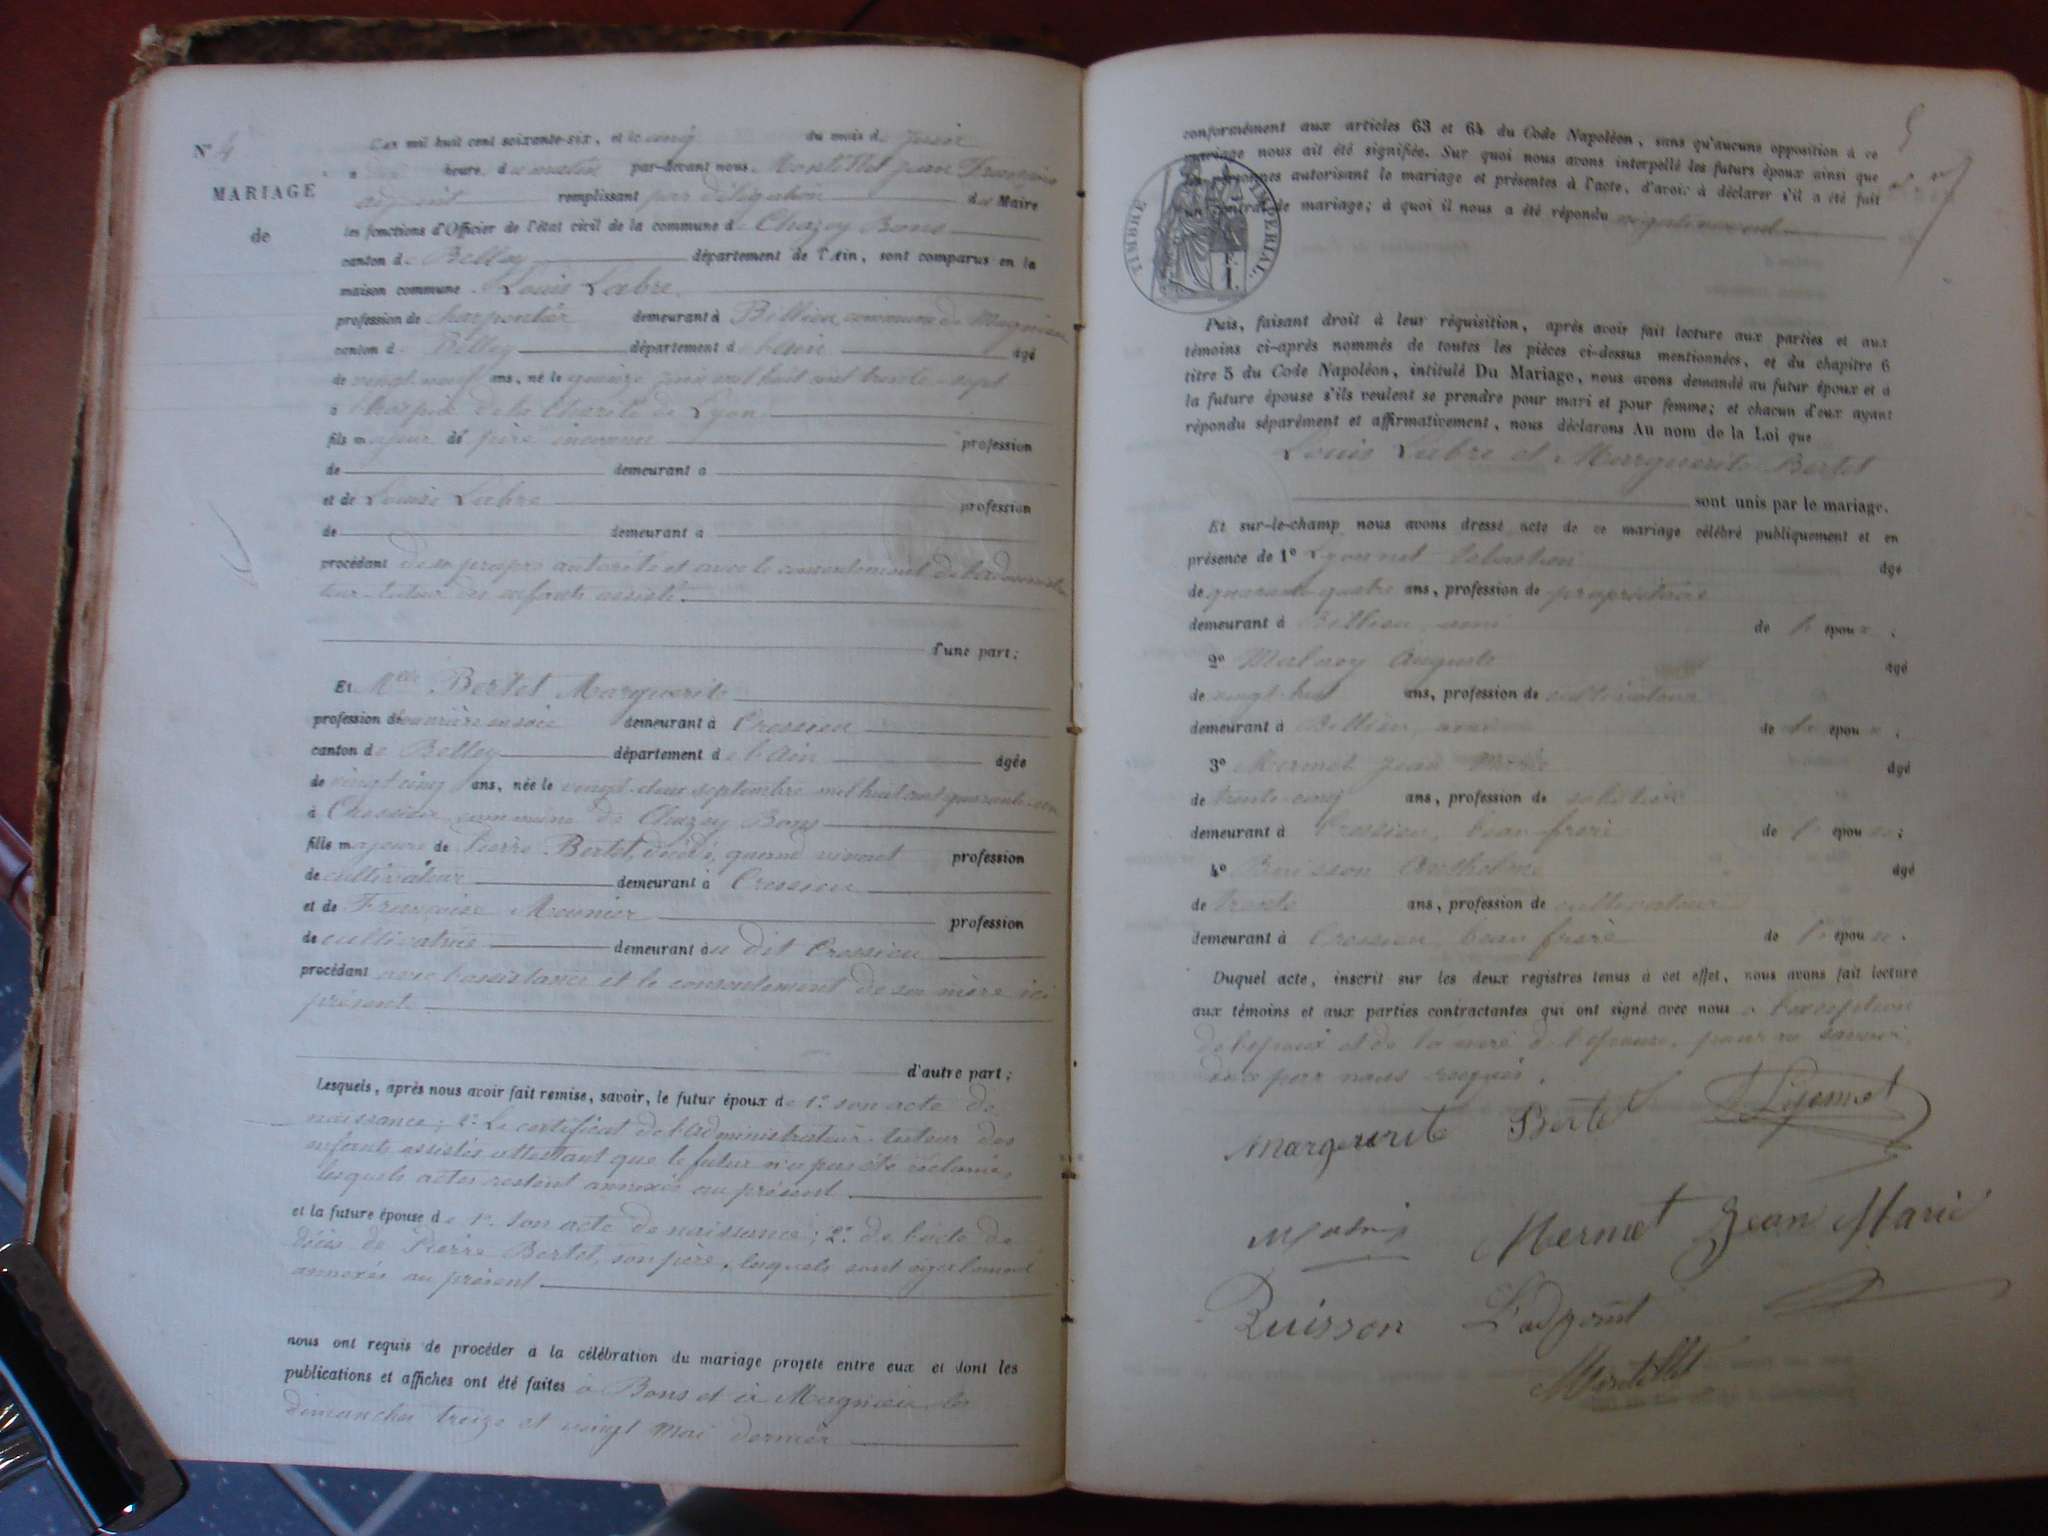 N° 4
MARIAGE
de
L'an mil huit cent soixante-six, et le cinq du mois de juin
à heure du matin par-devant nous Montillet Jean François
adjoint remplissant par délégation du Maire
les fonctions d'Officier de l'état civil de la commune de Chazey Bons
canton de Belley département de l'Ain, sont comparus en la
maison commune Louis Labre
profession de charpentier demeurant à Billieu, commune de Magnieu
canton de Belley département de l'ain âgé
de vingt neuf ans, né le quinze juin mil huit cent trente-sept
à l'hospice de la Charité de Lyon
fils majeur de père inconnu profession
de demeurant à
et de Louise Labre profession
de demeurant à
procédant de sa propre autorité et avec le consentement de l'administra
teur-tuteur des enfants assistés.
d'une part;
Et Mlle Bertet Marguerite
profession d'ouvrière en soie demeurant à Cressieu
canton de Belley département de l'Ain âgée
de vingt cinq ans, née le vingt-deux septembre mil huit cent quarante
à Chessieu commune de Chazey Bons
fille majeure de Pierre Bertet, décédé, quand vivant profession
de cultivateur demeurant à Cressieu
et de Françoise Meunier profession
de cultivatrice demeurant au dit Cressieu
procédant avec l'assistance et le consentement de sa mère ici
présent
d'autre part;
Lesquels, après nous avoir fait remise, savoir, le futur époux de 1° son acte de
naissance; 2° Le certificat de l'administrateur-tuteur des
enfants assistés attestant que le futur n'a pas été réclamé,
lesquels actes restent annexés au présent
et la future épouse de 1° son acte de naissance; 2° de l'acte de
décès de Pierre Bertet, son père, lesquels sont également
annexés au présent
nous ont requis de procéder à la célébration du mariage projeté entre eux et dont les
publications et affiches ont été faites à Bons et à Magnieu, les
dimanches treize et vingt Mai dernier
5
conformément aux articles 63 et 64 du Code Napoléon, sans qu'aucune opposition à ce
mariage nous ait été signifiée. Sur quoi nous avons interpellé les futurs époux ainsi que
les personnes autorisant le mariage et présentes à l'acte, d'avoir à déclarer s'il a été fait
un contrat de mariage; à quoi il nous a été répondu négativement
TIMBRE IMPÉRIAL
Puis, faisant droit à leur réquisition, après avoir fait lecture aux parties et aux
témoins ci-après nommés de toutes les pièces ci-dessus mentionnées, et du chapitre 6
titre 5 du Code Napoléon, intitulé Du Mariage, nous avons demandé au futur époux et à
la future épouse s'ils veulent se prendre pour mari et pour femme; et chacun d'eux ayant
répondu séparément et affirmativement, nous déclarons Au nom de la Loi que
Louis Labre et Marguerite Bertet
sont unis par le mariage.
Et sur-le-champ nous avons dressé acte de ce mariage célébré publiquement et en
présence de 1° Lyonnet Sebastien âgé
de quarante-quatre ans, profession de propriétaire
demeurant à Billieu, ami de l'époux;
2° Auguste âgé
de vingt-huit ans, profession de cultivateur
demeurant à Billieu, ami de l'époux;
3° Mermet Jean Marie âgé
de trente-cinq ans, profession de
demeurant à Cressieu, beau frère de l'épouse;
4° Buisson Anthelme âgé
de trente ans, profession de cultivateur
demeurant à Cressieu, beau frère de l'épouse.
Duquel acte, inscrit sur les deux registres tenus à cet effet, nous avons fait lecture
aux témoins et aux parties contractantes qui ont signé avec nous à l'exception
de l'époux et de la mère de l'épouse, pour ne savoir,
de ce par nous requis.
Margererite Bertet Lyonnet
Mermet Jean Marie
Buisson L'adjoint
Montillet